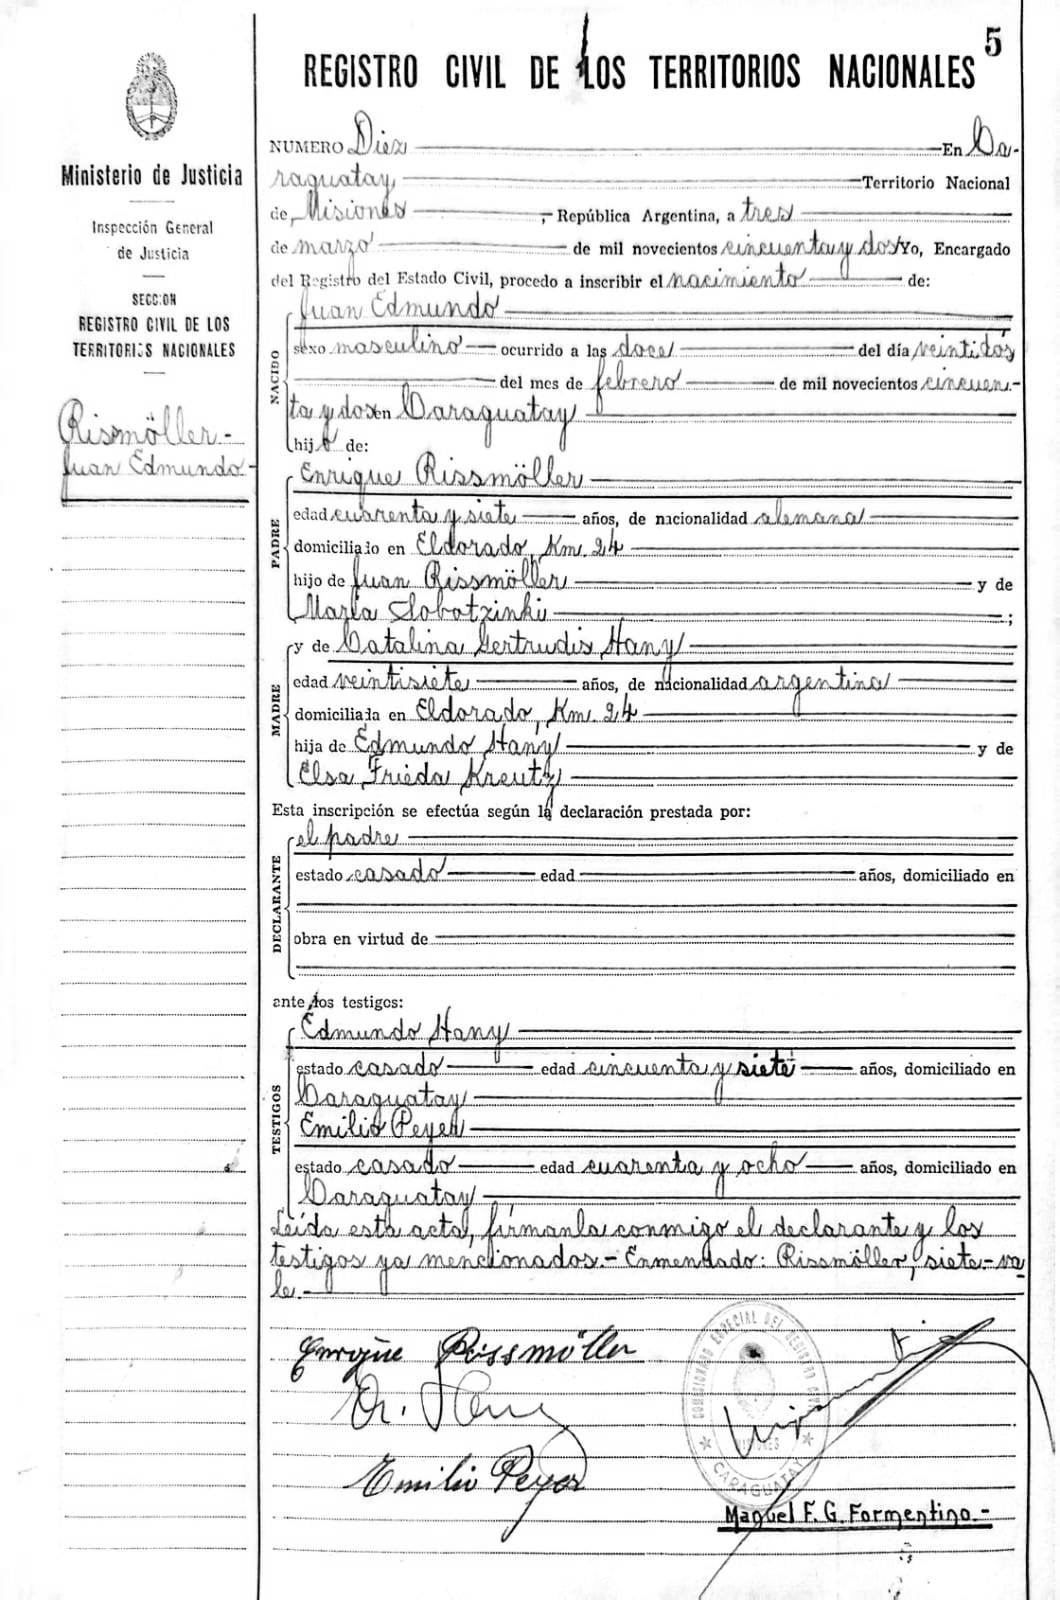 5
REGISTRO CIVIL DE LOS TERRITORIOS NACIONALES
Ministerio de Justicia
Inspección General
de Justicia
SECCION
REGISTRO CIVIL DE LOS
TERRITORIOS NACIONALES
Rissmöller.-
Juan Edmundo.-
NUMERO Diez En Ca-
raguatay Territorio Nacional
de Misiones, República Argentina, a tres
de marzo de mil novecientos cincuenta y dos Yo, Encargado
del Registro del Estado Civil, procedo a inscribir el nacimiento de:
NACIDO
Juan Edmundo
sexo masculino ocurrido a las doce del día veintidós
del mes de febrero de mil novecientos cincuen-
ta y dos en Caraguatay
hijo de:
PADRE
Enrique Rissmöller
edad cuarenta y siete años, de nacionalidad alemana
domiciliado en Eldorado, Km. 24
hijo de Juan Rissmöller y de
María Sobotzinki ;
MADRE
y de Catalina Gertrudis Hany
edad veintisiete años, de nacionalidad argentina
domiciliada en Eldorado, Km. 24
hija de Edmundo Hany y de
Elsa Frieda Kreutz
Esta inscripción se efectúa según la declaración prestada por:
DECLARANTE
el padre
estado casado edad años, domiciliado en
obra en virtud de
ante los testigos:
TESTIGOS
Edmundo Hany
estado casado edad cincuenta y siete años, domiciliado en
Caraguatay
Emilio Peyer
estado casado edad cuarenta y ocho años, domiciliado en
Caraguatay
Leída esta acta, fírmanla conmigo el declarante y los
testigos ya mencionados.- Enmendado: Rissmöller, siete- va-
le.-
Enrique Rissmöller
Emilio Peyer
REGISTRO CIVIL
MISIONES
CARAGUATAY
Manuel F. G. Formentino.-